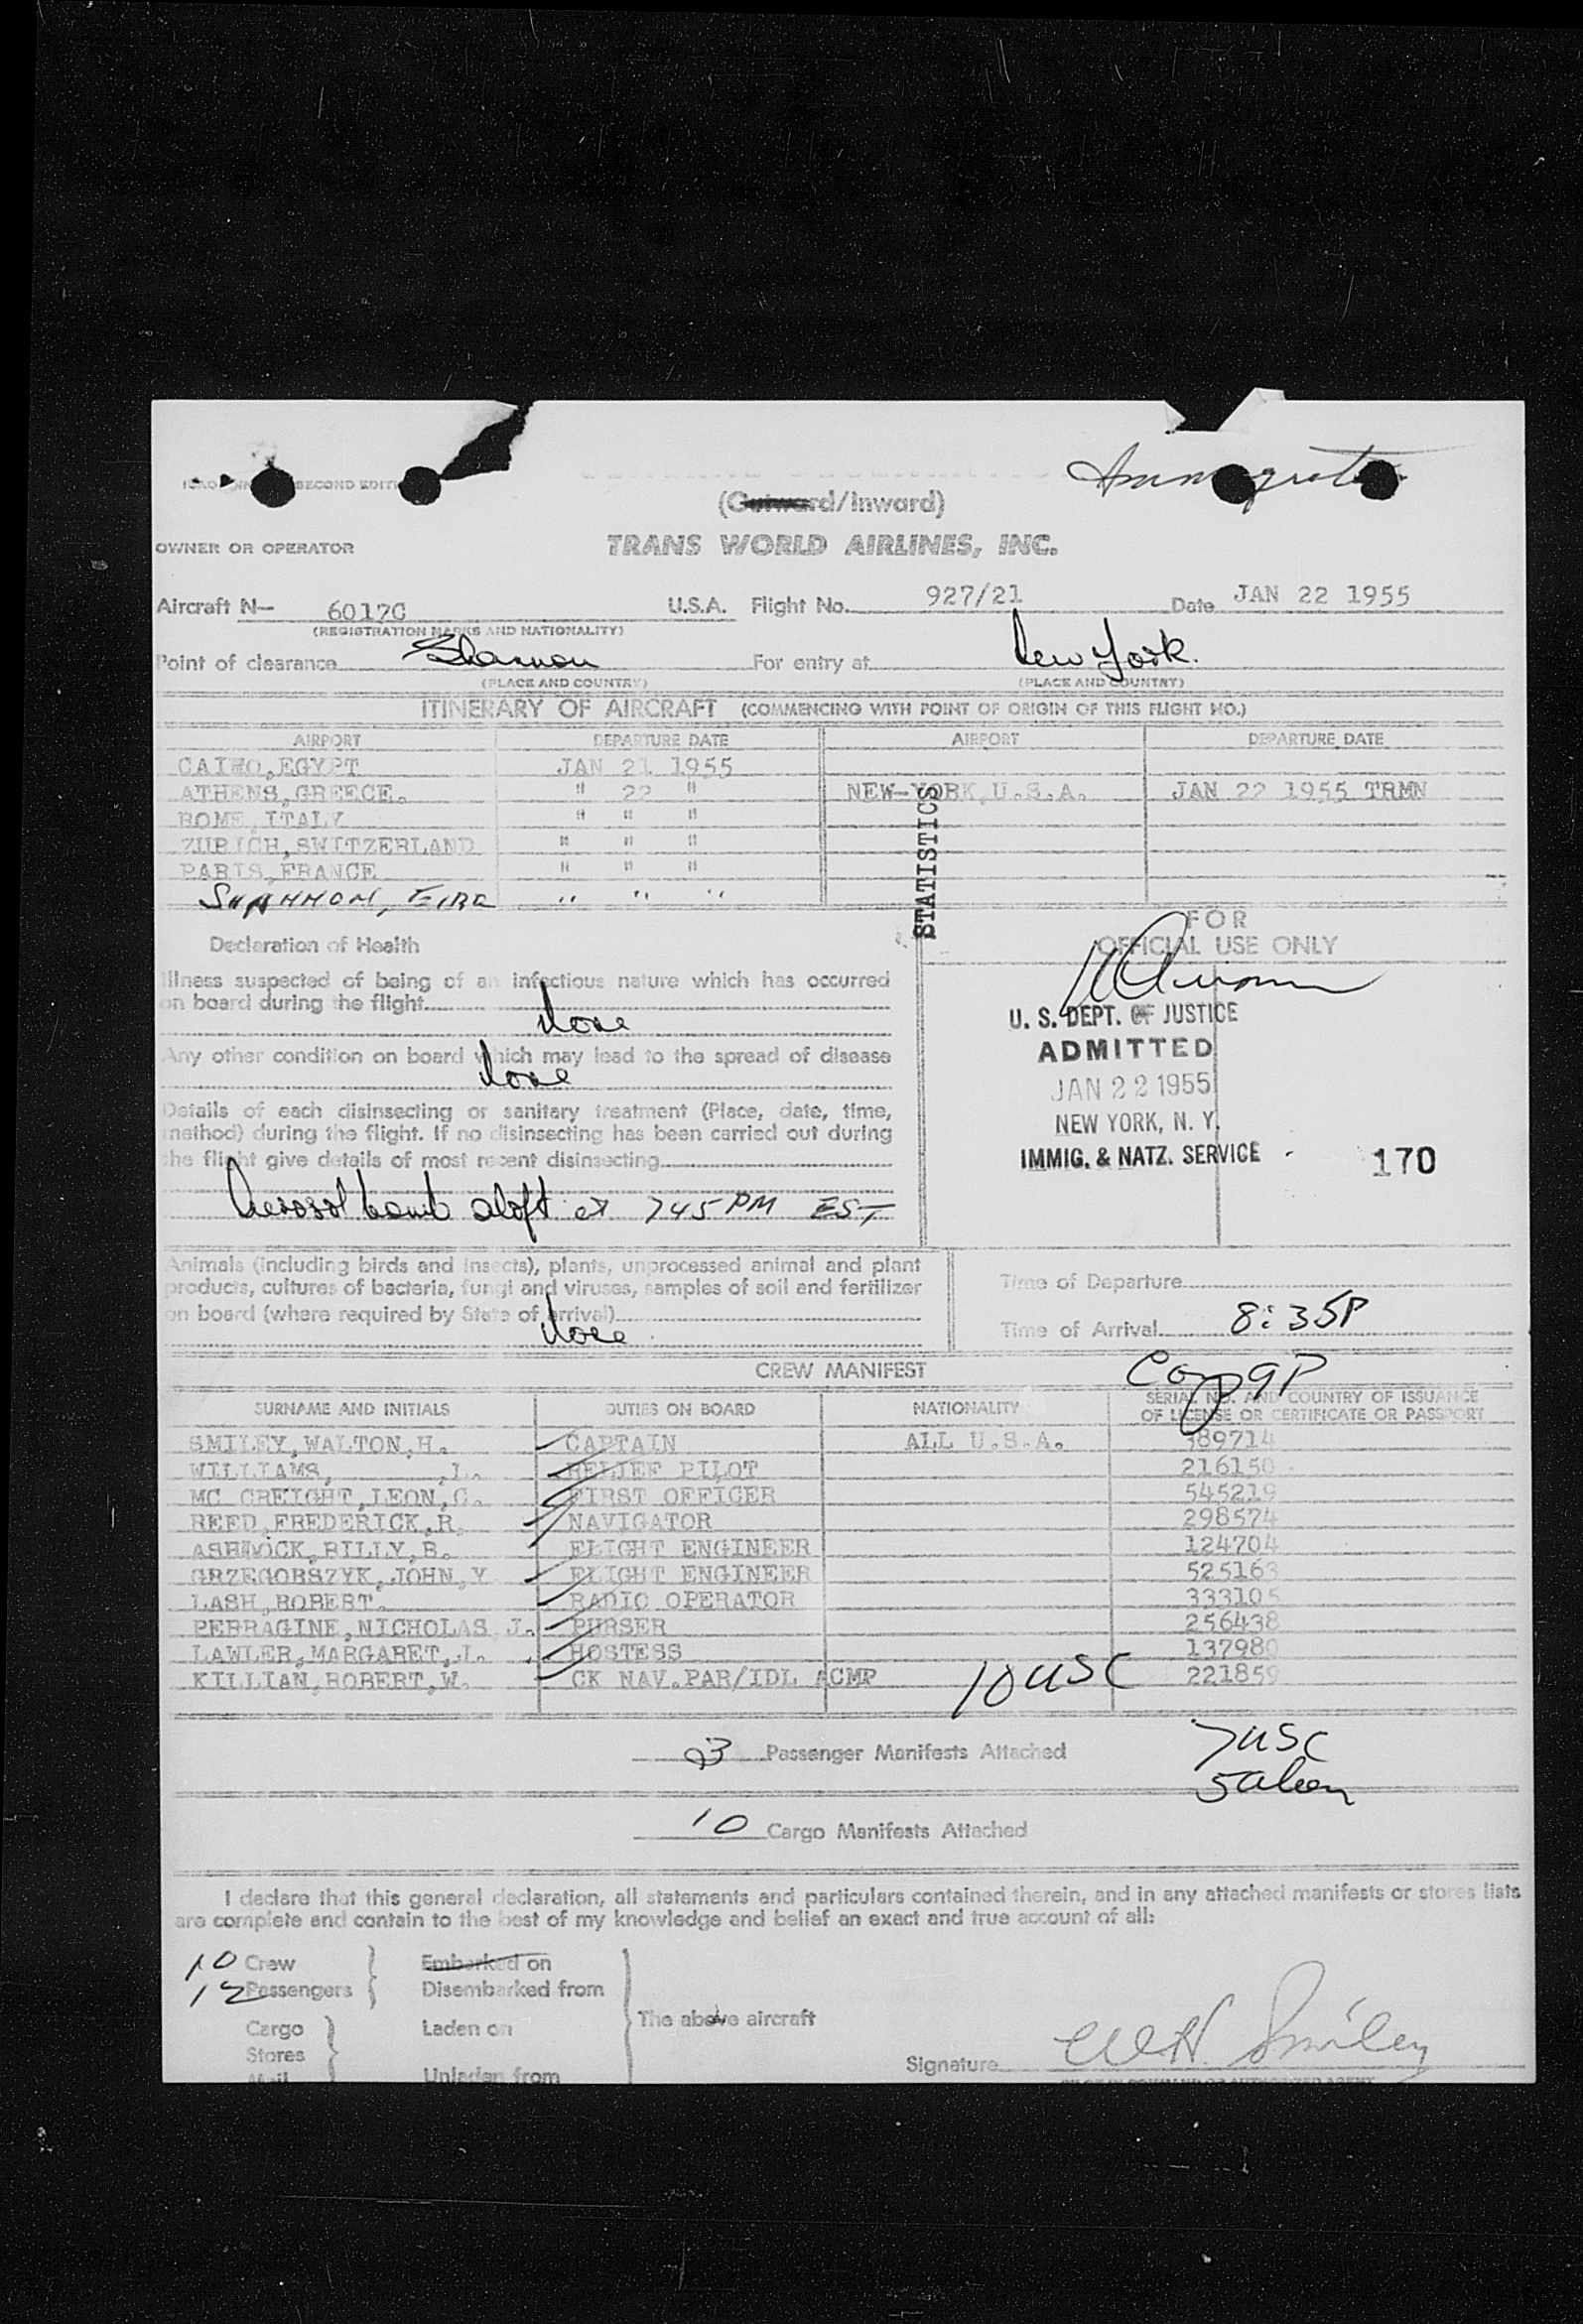 SECOND EDITI
(Outward/Inward)
OWNER OR OPERATOR
TRANS WORLD AIRLINES, INC.
Aircraft N- 6017C U.S.A. Flight No. 927/21 Date JAN 22 1955
(REGISTRATION MARKS AND NATIONALITY)
Point of clearance Shannon For entry at New York.
(PLACE AND COUNTRY) (PLACE AND COUNTRY)
ITINERARY OF AIRCRAFT (COMMENCING WITH POINT OF ORIGIN OF THIS FLIGHT NO.)
AIRPORT DEPARTURE DATE AIRPORT DEPARTURE DATE
CAIRO,EGYPT JAN 21 1955
ATHENS,GREECE. " 22 " NEW-YORK,U.S.A. JAN 22 1955 TRMN
ROME,ITALY " " "
ZURICH,SWITZERLAND " " "
PARIS,FRANCE " " "
SHANNON, EIRE " " "
STATISTICS
FOR
OFFICIAL USE ONLY
Declaration of Health
Illness suspected of being of an infectious nature which has occurred
on board during the flight
None
Any other condition on board which may lead to the spread of disease
None
Details of each disinsecting or sanitary treatment (Place, date, time,
method) during the flight. If no disinsecting has been carried out during
the flight give details of most recent disinsecting
Aerosol bomb aloft at 745 PM EST
U. S. DEPT. OF JUSTICE
ADMITTED
JAN 22 1955
NEW YORK, N. Y.
IMMIG. & NATZ. SERVICE
170
Animals (including birds and insects), plants, unprocessed animal and plant
products, cultures of bacteria, fungi and viruses, samples of soil and fertilizer
on board (where required by State of arrival)
None
Time of Departure
Time of Arrival 8:35P
CREW MANIFEST
9P
SURNAME AND INITIALS DUTIES ON BOARD NATIONALITY SERIAL NO. AND COUNTRY OF ISSUANCE
OF LICENSE OR CERTIFICATE OR PASSPORT
SMILEY,WALTON,H. CAPTAIN ALL U.S.A. 389714
WILLIAMS, ,L. RELIEF PILOT 216150
MC CREIGHT,LEON,C. FIRST OFFICER 545219
REED,FREDERICK,R. NAVIGATOR 298574
BILLY,B. FLIGHT ENGINEER 124704
GRZEGORSZYK,JOHN,Y FLIGHT ENGINEER 525163
LASH,ROBERT. RADIO OPERATOR 333105
PERRAGINE,NICHOLAS J. PURSER 256438
LAWLER,MARGARET,J. HOSTESS 137980
KILLIAN,ROBERT,W. CK NAV.PAR/IDL ACMP 221859
10 USC
3 Passenger Manifests Attached
7 USC
5 alien
10 Cargo Manifests Attached
I declare that this general declaration, all statements and particulars contained therein, and in any attached manifests or stores lists
are complete and contain to the best of my knowledge and belief an exact and true account of all:
10 Crew Embarked on
12 Passengers Disembarked from
The above aircraft
Cargo Laden on
Stores
Mail Unladen from
Signature WH Smiley